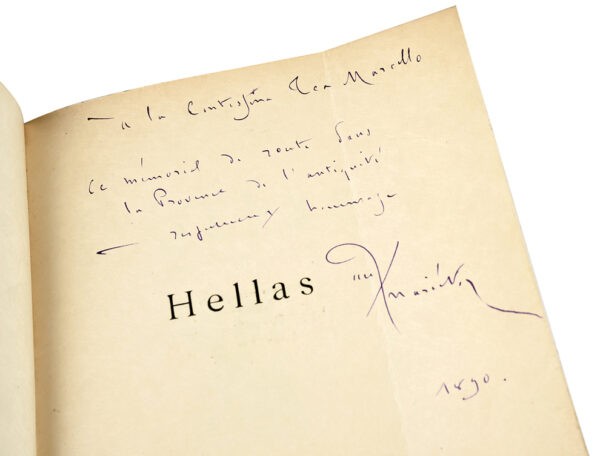 — a la Contessina Tea Marcello
ce mémorial de route dans
la Provence de l'antiquité
— respectueux hommage
Mariéton
Hellas
1890.